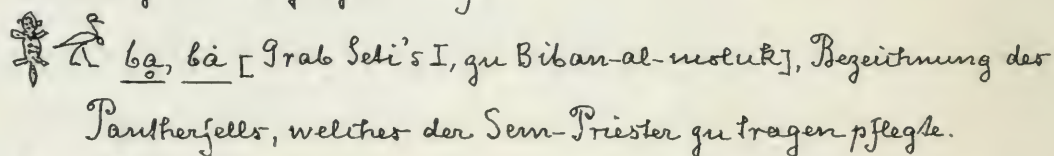 bạ, bȧ [Grab Seti's I, zu Biban-al-moluk], Bezeichnung des
Pantherfells, welches der Sem-Priester zu tragen pflegte.